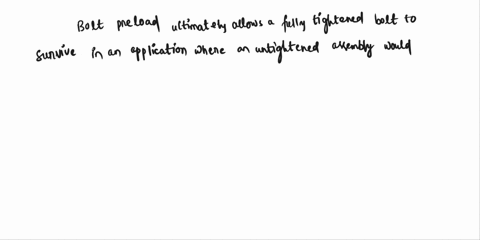 Bolt preload ultimately allows a fully tightened bolt to
survive in an application where an untightened assembly would